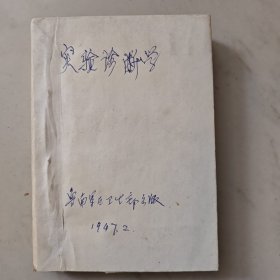 实验诊断学
鲁南军区卫生部出版
1947.2